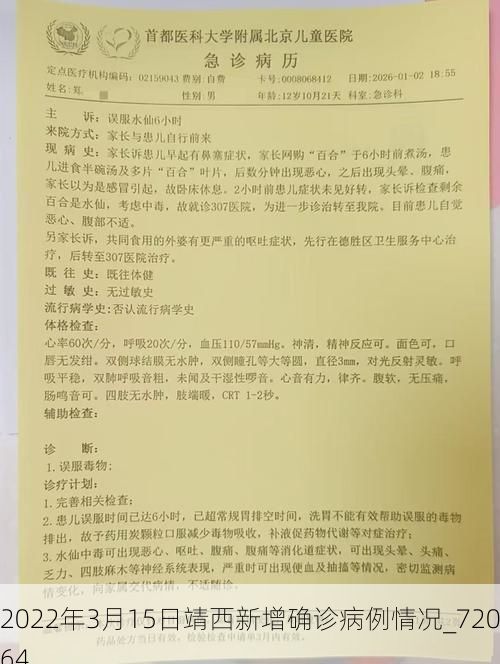 首都医科大学附属北京儿童医院
急诊病历
定点医疗机构编码：02159043 费别:自费 卡号:0008068412 日期:2026-01-02 18:55
姓名:郑 性别：男 年龄:12岁10月21天 科室:急诊科
主 诉：误服水仙6小时
来院方式：家长与患儿自行前来
现 病 史：家长诉患儿早起有鼻塞症状，家长网购“百合”于6小时前煮汤，患
儿进食半碗汤及多片“百合”叶片，后数分钟出现恶心，之后出现头晕、腹痛，
家长以为是感冒引起，故卧床休息。2小时前患儿症状未见好转，家长诉检查剩余
百合是水仙，考虑中毒，故就诊307医院，为进一步诊治转至我院。目前患儿自觉
恶心、腹部不适。
另家长诉，共同食用的外婆有更严重的呕吐症状，先行在德胜区卫生服务中心治
疗，后转至307医院治疗。
既 往 史：既往体健
过 敏 史：无过敏史
流行病学史:否认流行病学史
体格检查：
心率60次/分，呼吸20次/分，血压110/57mmHg。神清，精神反应可。面色可。口
唇无发绀。双侧球结膜无水肿，双侧瞳孔等大等圆，直径3mm，对光反射灵敏。呼
吸平稳，双肺呼吸音粗，未闻及干湿性啰音。心音有力，律齐。腹软，无压痛，
肠鸣音可。四肢无水肿，肢端暖，CRT 1-2秒。
辅助检查：
诊 断：
1.误服毒物；
诊疗计划：
1.完善相关检查；
2.患儿误服时间已达6小时，已超常规胃排空时间，洗胃不能有效帮助误服的毒物
排出，故予药用炭颗粒口服减少毒物吸收，补液促药物代谢等对症治疗；
3.水仙中毒可出现恶心、呕吐、腹痛、腹痛等消化道症状，可出现头晕、头痛、
乏力、四肢麻木等神经系统表现，严重时可出现便血及抽搐等情况，密切监测病
情变化，向家属交代病情，不适随诊。
2022年3月15日靖西新增确诊病例情况_720
64
药品处方当日有效，检验检查申请单3月内有效。